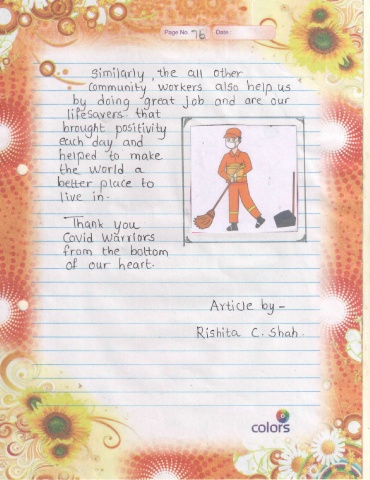 Page No. 76 Date:
Similarly, the all other
community workers also help us
by doing great job and are our
lifesavers that
brought positivity
each day and
helped to make
the world a
better place to
live in.
Thank you
Covid Warriors
from the bottom
of our heart.
Article by -
Rishita C. Shah.
colors